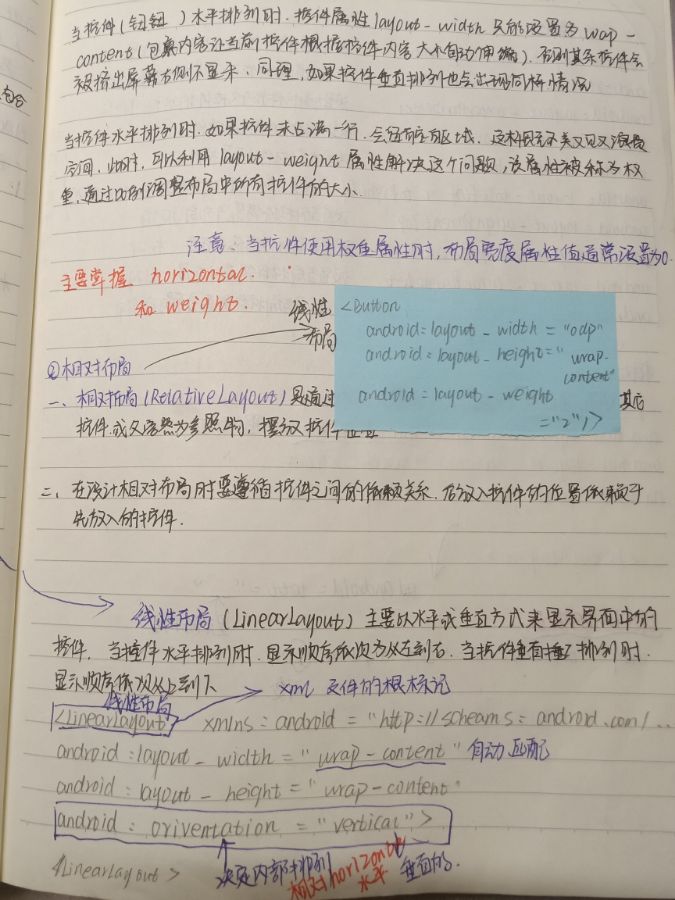 当控件(钮钮)水平排列时.控件属性layout-width 只能设置为 wap-
content(包裹内容让当前控件根据控件内容大小自动伸缩).否则其余控件会
被挤出屏幕右侧不显示.同理,如果控件垂直排列也会出现同样情况
包含
当控件水平排列时.如果控件未占满一行.会留有空白区域.这样既不美又浪费
空间,此时,可以利用layout-weight属性解决这个问题,该属性被称为权
重,通过比例调整布局中所有控件的大小.
注意:当控件使用权重属性时,布局宽度属性值通常设置为0.
主要掌握 horizontal
和 weight.
线性
布局
<Button
android=layout-width="0dp"
android=layout-height="wrap-
content"
android=layout-weight
="2"/>
②相对布局
一、相对布局(RelativeLayout)是通过 其它
控件或父容器为参照物,摆放控件位置
二、在设计相对布局时要遵循控件之间的依赖关系.后放入控件的位置依赖于
先放入的控件.
线性布局(LinearLayout)主要以水平或垂直方式来显示界面中的
控件.当控件水平排列时.显示顺序依次为从左到右.当控件垂直排列时.
显示顺序依次从上到下
线性布局
xml文件的根标记
<LinearLayout xmlns=android="http://scheams=android.com/..
android:layout-width="wrap-content" 自动匹配
android:layout-height="wrap-content"
android:oriventation="vertical">
决定内部排列 垂直的.
相对horizontal
水平
<LinearLayout>